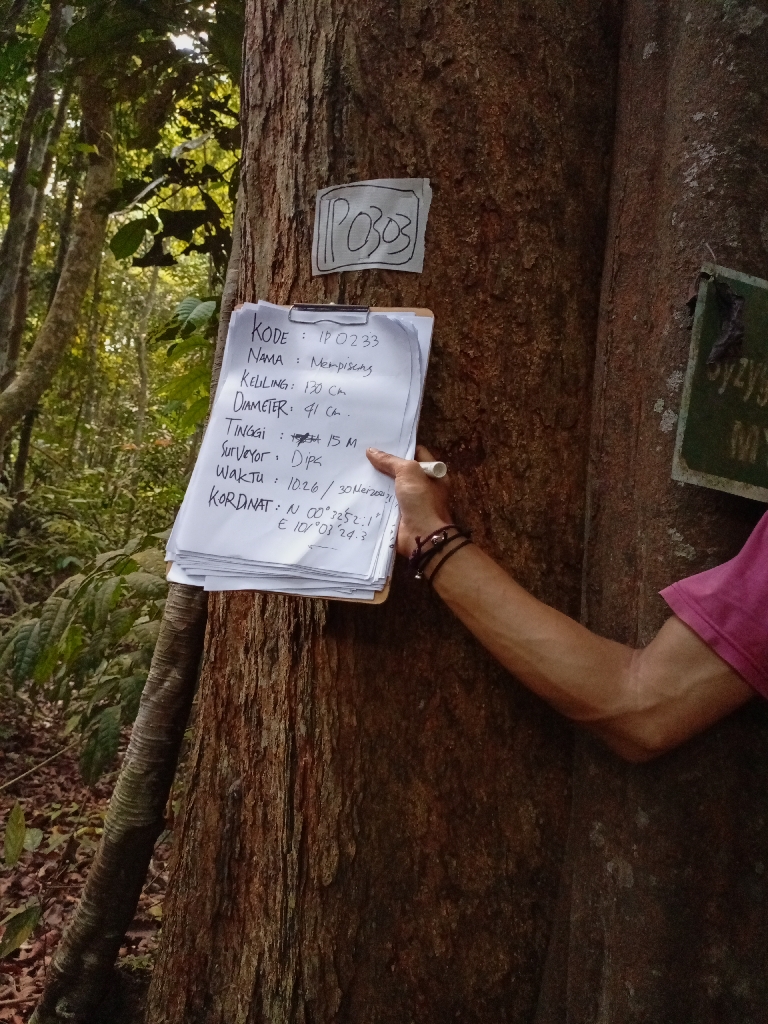 IP0303
KODE : IP 0233
NAMA : Nempisang
KELILING : 130 Cm
DIAMETER : 41 Cm.
TINGGI : 15 M
SURVEYOR : Dipa
WAKTU : 1026 / 30
KORDINAT : N 00°32'52.1"
E 101°03'24.3
Syzyg
MY